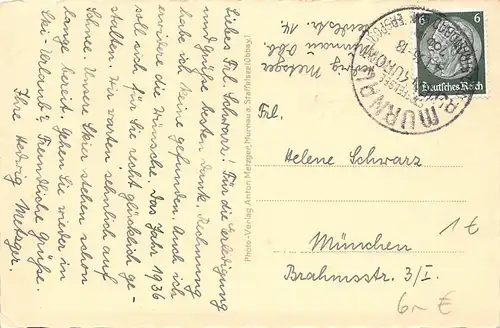 Liebes Frl. Schwarz! Für die Erledigung
und Grüße besten Dank. Rechnung
habe ich keine gefunden. Auch ich
erwidere die Wünsche. Das Jahr 1936
soll sich für Sie recht glücklich ge-
stalten. Wir warten sehnlich auf
Schnee. Unsere Skier stehen schon
lange bereit. Gehen Sie wieder in
Ski-Urlaub? Freundliche Grüße.
Ihre Hedwig Metzger.
Photo-Verlag Anton Metzger, Murnau a. Staffelsee (Obbay.)
Hedwig Metzger
Murnau Obb.
MURNAU
6
6
Deutsches Reich
Frl.
Helene Schwarz
München
Brahmsstr. 3/I.
1 €
6,- €